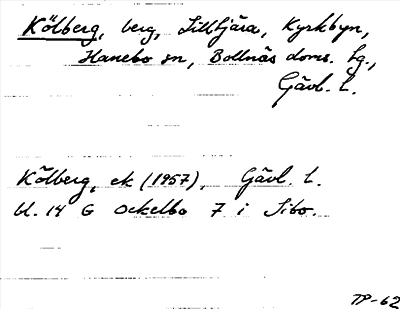 Kölberg, berg, Lilltjära, Kyrkbyn,
Hanebo sn, Bollnäs doms. lg.,
Gävl. l.
Kölberg, ek (1957), Gävl. l.
bl. 14 G Ockelbo 7 i Sibo.
TP-62